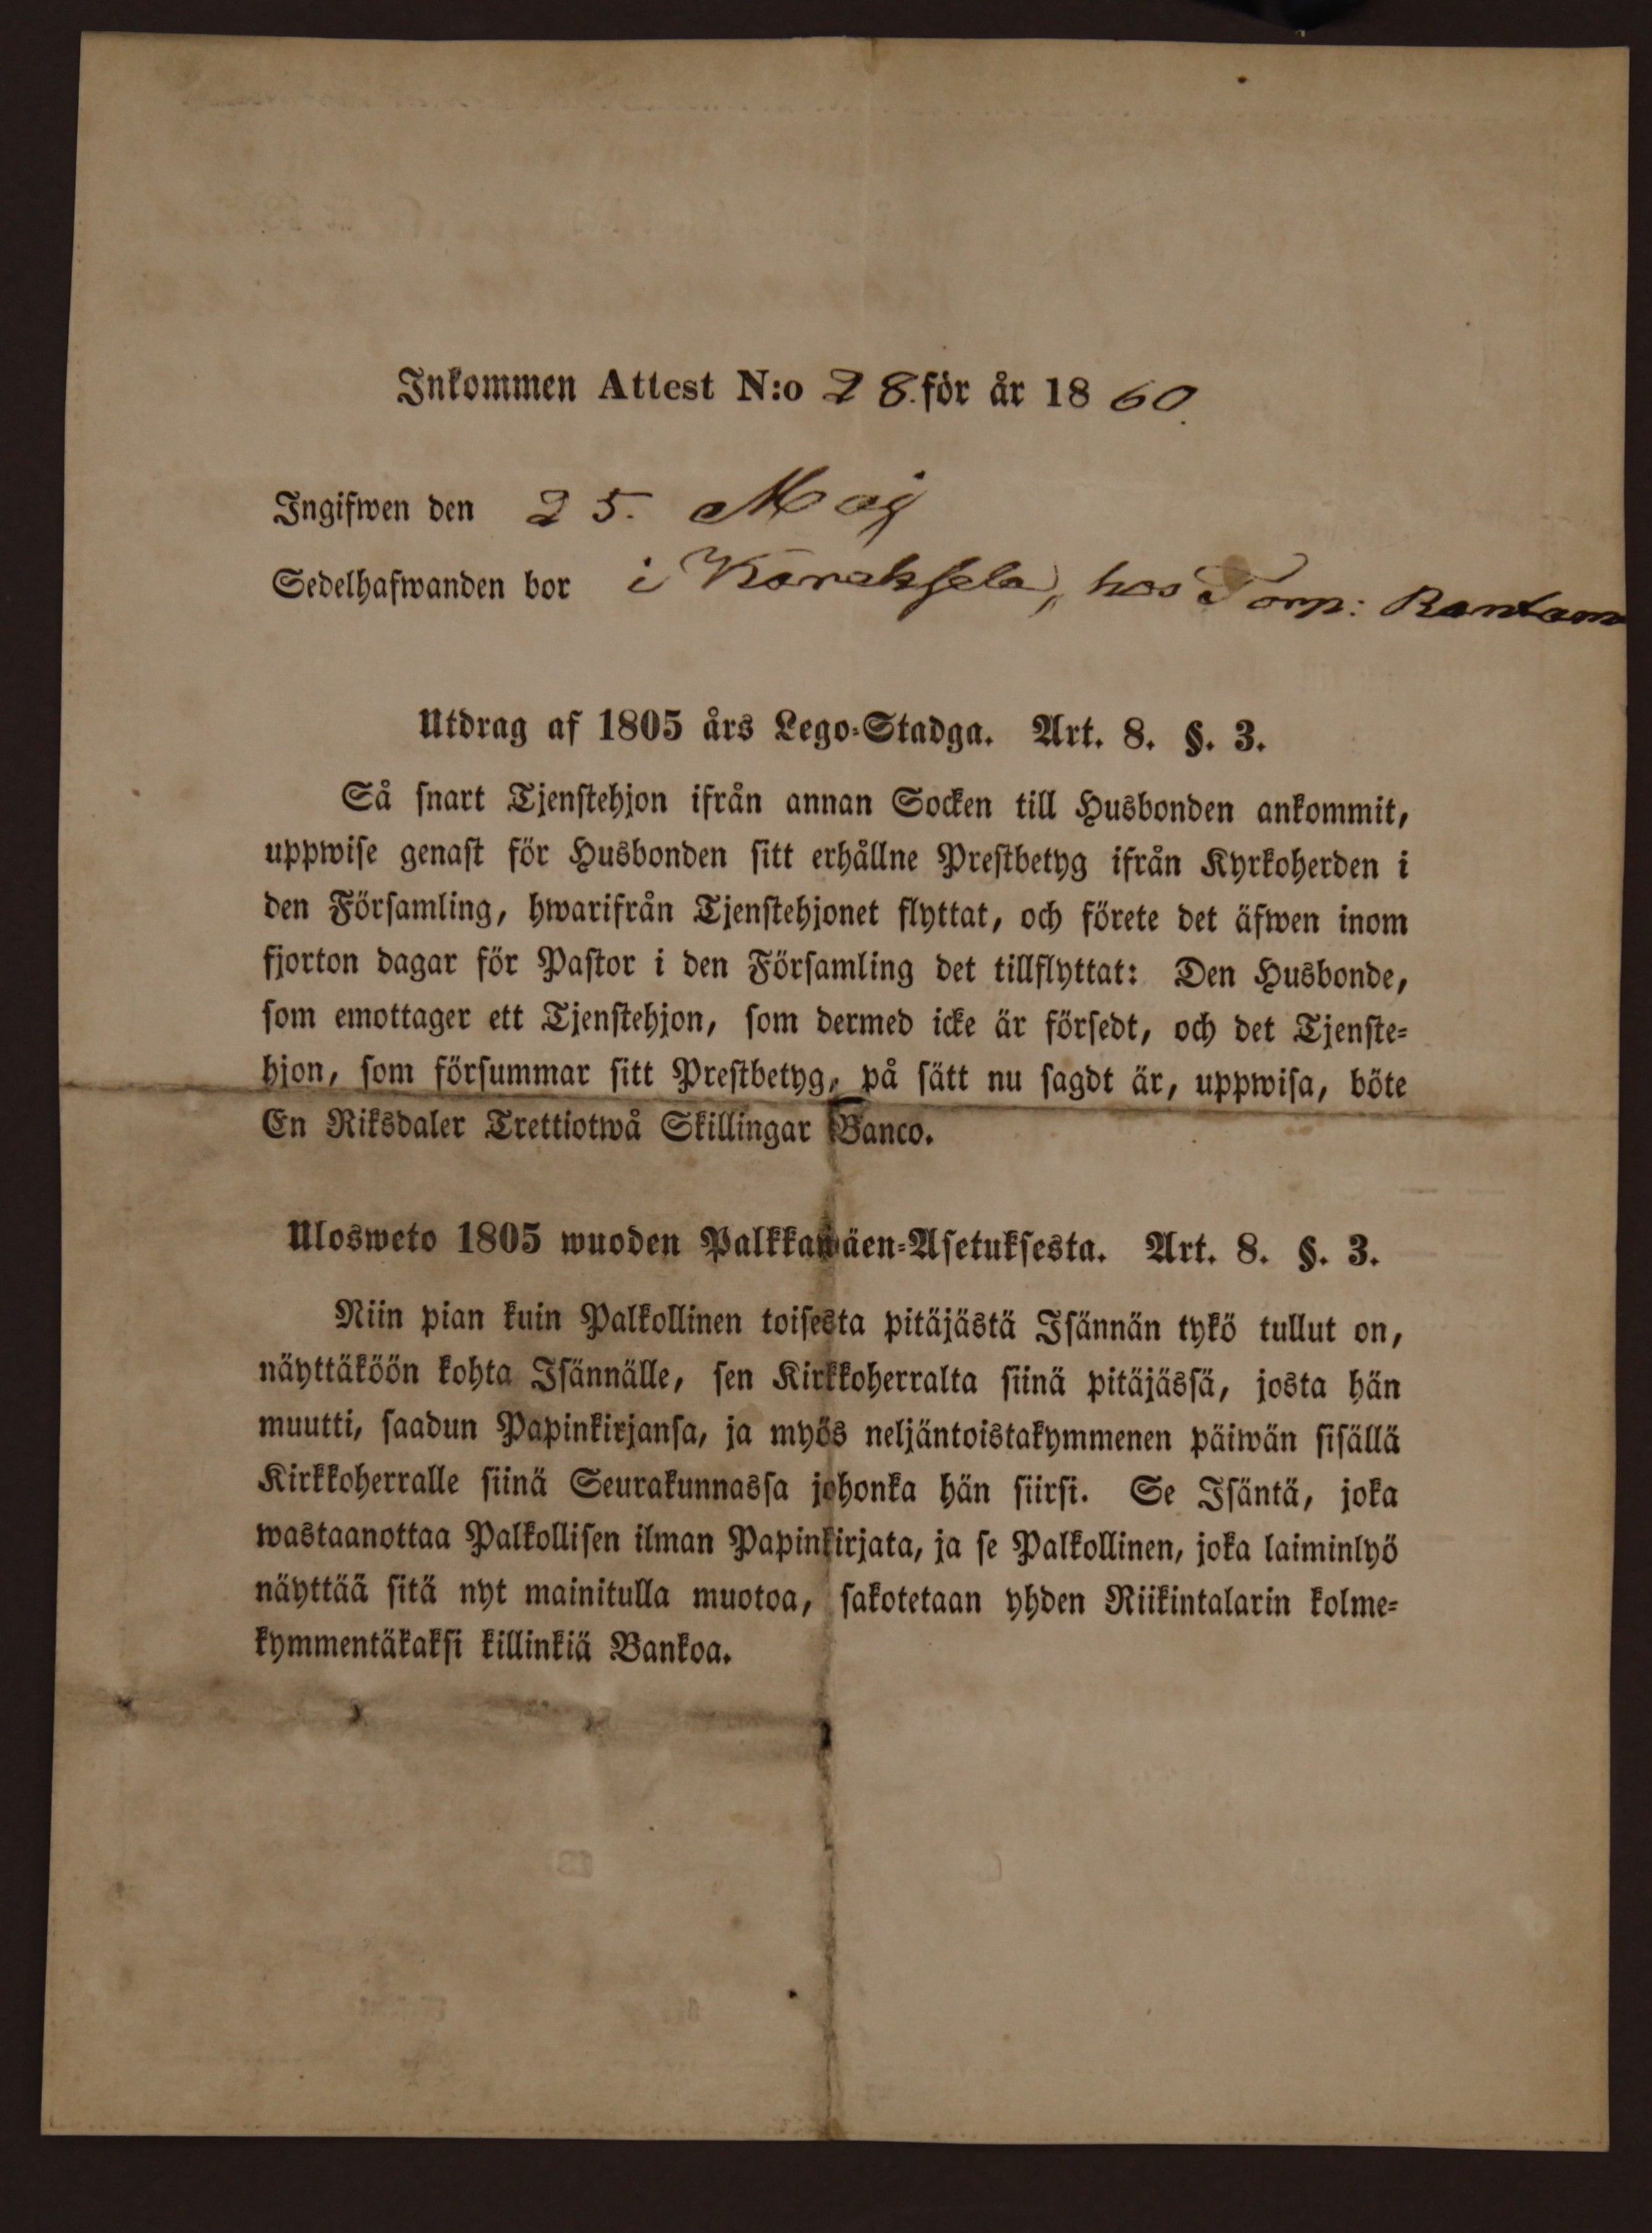 Inkommen Attest N:o 28. för år 1860.
Ingifwen den 25. Maj
Sedelhafwanden bor i Karaksela, hos Torp: Rantam
Utdrag af 1805 års Lego-Stadga. Art. 8. §. 3.
Så snart Tjenstehjon ifrån annan Socken till Husbonden ankommit,
uppwise genast för Husbonden sitt erhållne Prestbetyg ifrån Kyrkoherden i
den Församling, hwarifrån Tjenstehjonet flyttat, och förete det äfwen inom
fjorton dagar för Pastor i den Församling det tillflyttat: Den Husbonde,
som emottager ett Tjenstehjon, som dermed icke är försedt, och det Tjenste-
hjon, som försummar sitt Prestbetyg, på sätt nu sagdt är, uppwisa, böte
En Riksdaler Trettiotwå Skillingar Banco.
Ulosweto 1805 wuoden Palkkawäen-Asetuksesta. Art. 8. §. 3.
Niin pian kuin Palkollinen toisesta pitäjästä Isännän tykö tullut on,
näyttäköön kohta Isännälle, sen Kirkkoherralta siinä pitäjässä, josta hän
muutti, saadun Papinkirjansa, ja myös neljäntoistakymmenen päiwän sisällä
Kirkkoherralle siinä Seurakunnassa johonka hän siirsi. Se Isäntä, joka
wastaanottaa Palkollisen ilman Papinkirjata, ja se Palkollinen, joka laiminlyö
näyttää sitä nyt mainitulla muotoa, sakotetaan yhden Riikintalarin kolme-
kymmentäkaksi killinkiä Bankoa.